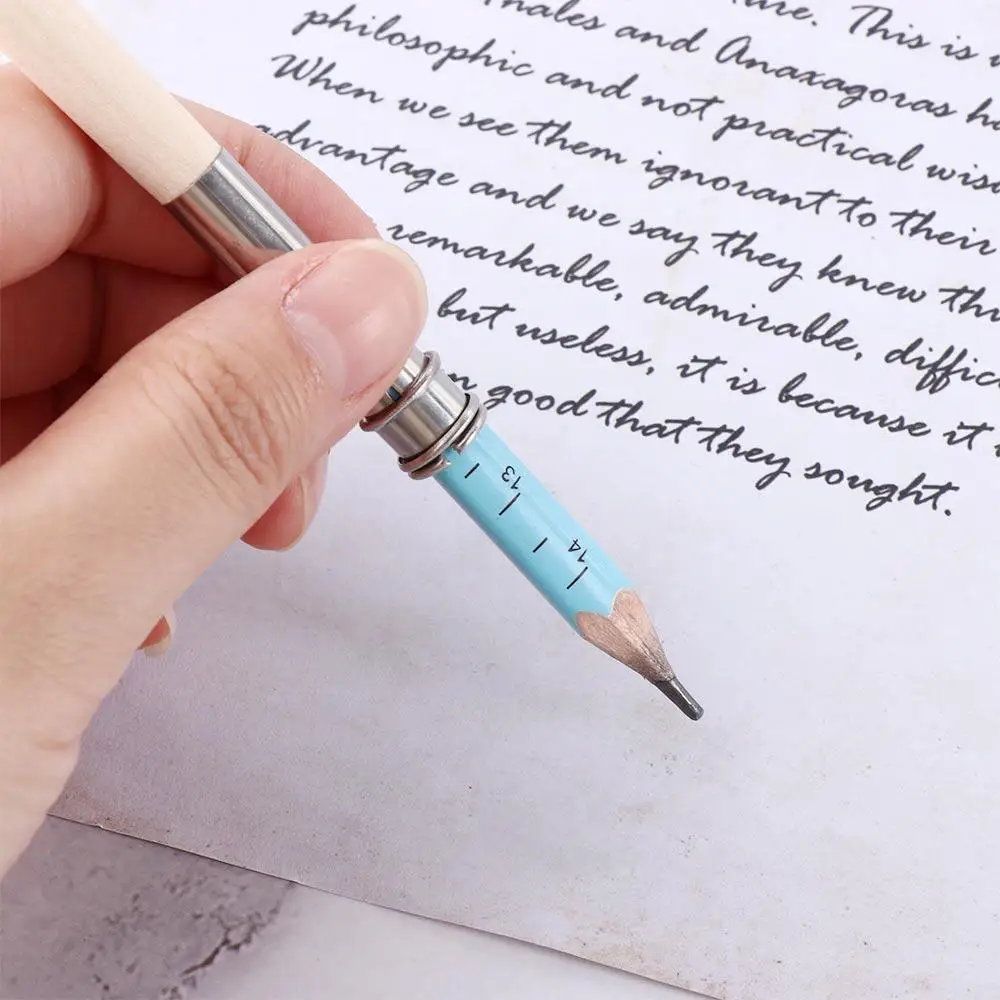 This is
and Anaxagoras
philosophic and not practical
When we see them ignorant to their
advantage and we say they knew
remarkable, admirable,
but useless, it is because it
good that they sought.
13
14